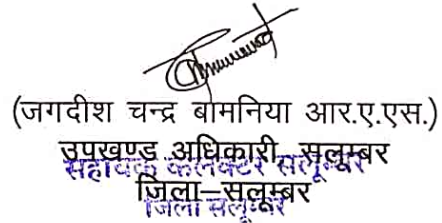 (जगदीश चन्द्र बामनिया आर.ए.एस.)
उपखण्ड अधिकारी, सलूम्बर
सहायक कलेक्टर सलूम्बर
जिला–सलूम्बर
जिला सलूम्बर